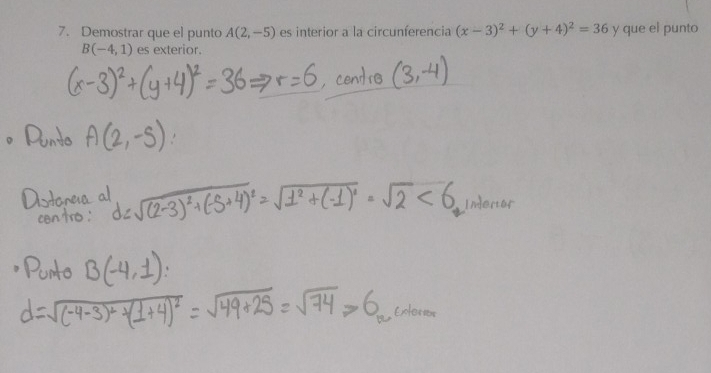 7. Demostrar que el punto A(2, −5) es interior a la circunferencia (x − 3)² + (y + 4)² = 36 y que el punto
B(−4, 1) es exterior.
(x-3)²+(y+4)² = 36 ⇒ r=6, centro (3,-4)
• Punto A(2,-5):
Distancia al
centro: d=√((2-3)²+(-5+4)²) = √(1²+(-1)²) = √2 < 6 Interior
• Punto B(-4,1):
d=√((-4-3)²+(1+4)²) = √(49+25) = √74 > 6 Exterior